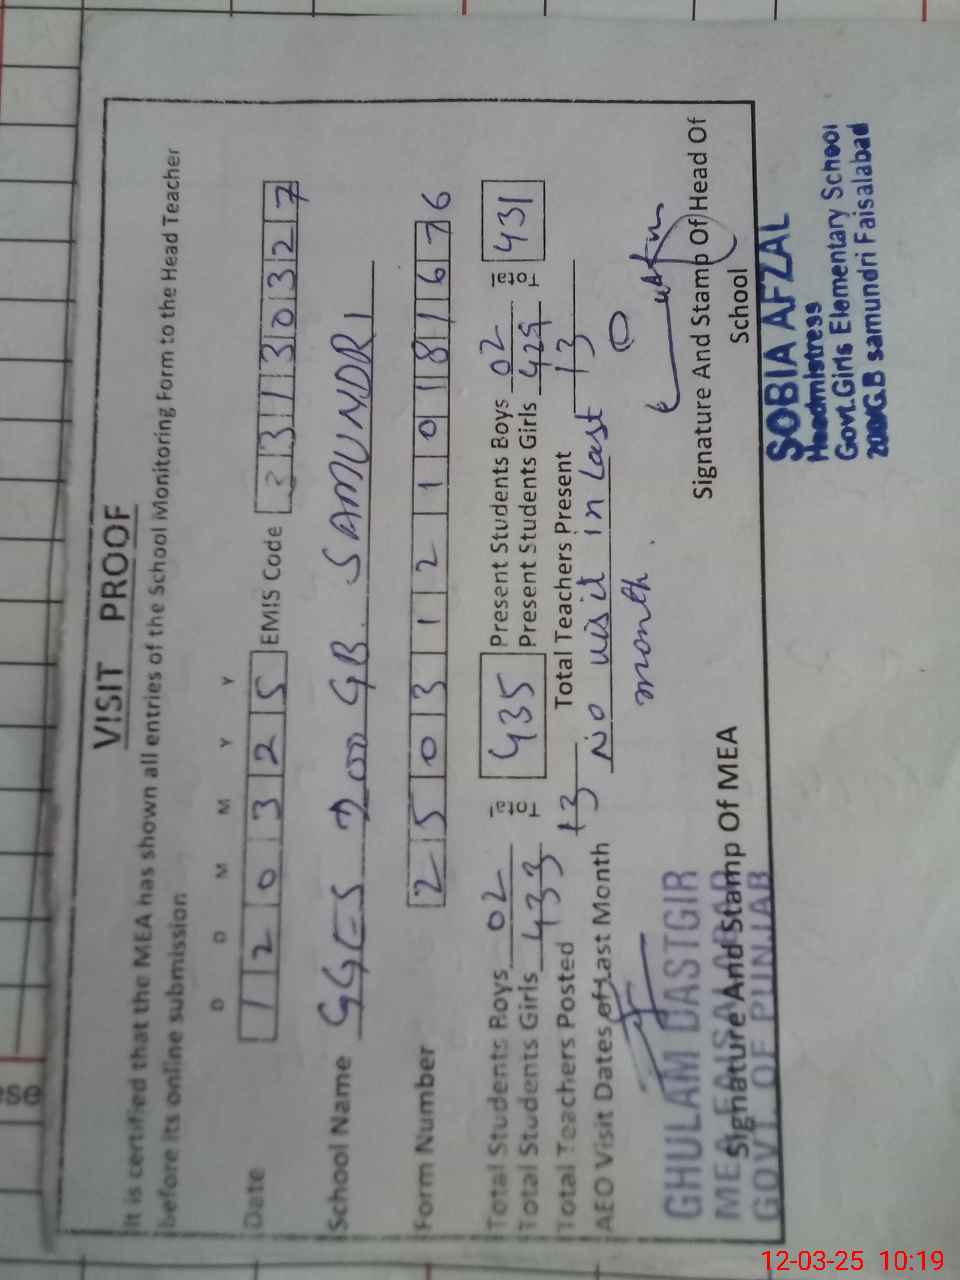 VISIT PROOF
It is certified that the MEA has shown all entries of the School Monitoring Form to the Head Teacher
before its online submission
D D M M Y Y
Date 1 2 0 3 2 5 EMIS Code 3 3 1 3 0 3 2 7
School Name GGES 200 GB SAMUNDRI
Form Number 2 5 0 3 1 2 1 0 1 8 1 6 7 6
Total Students Boys 02 Total 435 Present Students Boys 02 Total 431
Total Students Girls 433 Present Students Girls 429
Total Teachers Posted 13 Total Teachers Present 13
AEO Visit Dates of Last Month No visit in Last
month.
Signature And Stamp Of MEA
GHULAM DASTGIR
MEA FAISALABAD
GOVT. OF PUNJAB
Signature And Stamp Of Head Of
School
SOBIA AFZAL
Headmistress
Govt.Girls Elementary School
200/G.B samundri Faisalabad
ese
12-03-25 10:19